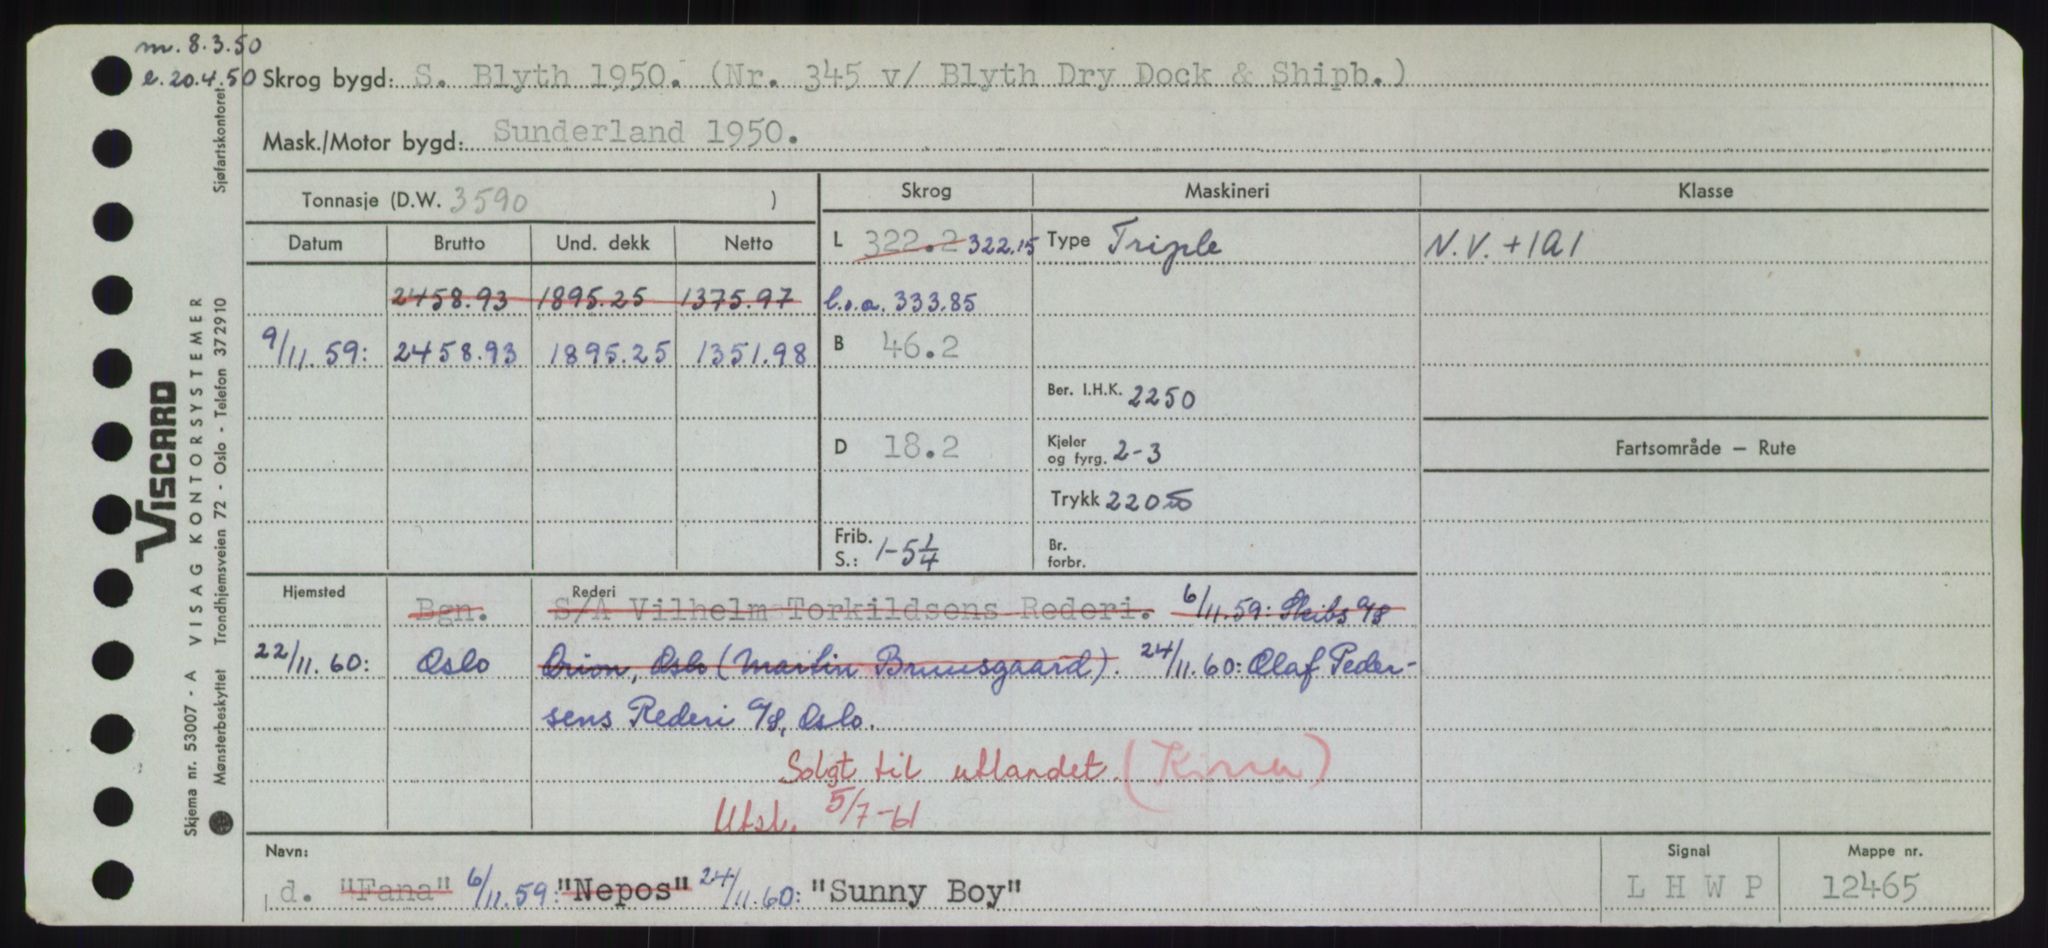 m. 8.3.50
e. 20.4.50
Skrog bygd: S. Blyth 1950. (Nr. 345 v/ Blyth Dry Dock & Shipb.)
Mask./Motor bygd: Sunderland 1950.
Tonnasje (D.W. 3590 )
Skrog Maskineri Klasse
Datum Brutto Und. dekk Netto
L 322.2 322.15 Type Triple N.V. +1A1
2458.93 1895.25 1375.97 l.o.a. 333.85
9/11.59: 2458.93 1895.25 1351.98 B 46.2
Ber. I.H.K. 2250
D 18.2 Kjeler og fyrg. 2-3 Fartsområde — Rute
Trykk 220
Frib. S.: 1-5 1/4 Br. forbr.
Hjemsted Rederi
Bgn. S/A Vilhelm Torkildsens Rederi. 6/11.59: Skibs A/S
22/11.60: Oslo Orion, Oslo (Martin Bruusgaard). 24/11.60: Olaf Peder-
sens Rederi A/S, Oslo.
Solgt til utlandet. (Kina)
Utsl. 5/7-61
Navn: Signal Mappe nr.
d. "Fana" 6/11.59: "Nepos" 24/11.60: "Sunny Boy" L H W P 12465
VISCARD
Skjema nr. 53007 - A VISAG KONTORSYSTEMER
Mønsterbeskyttet Trondhjemsveien 72 - Oslo - Telefon 372910 Sjøfartskontoret